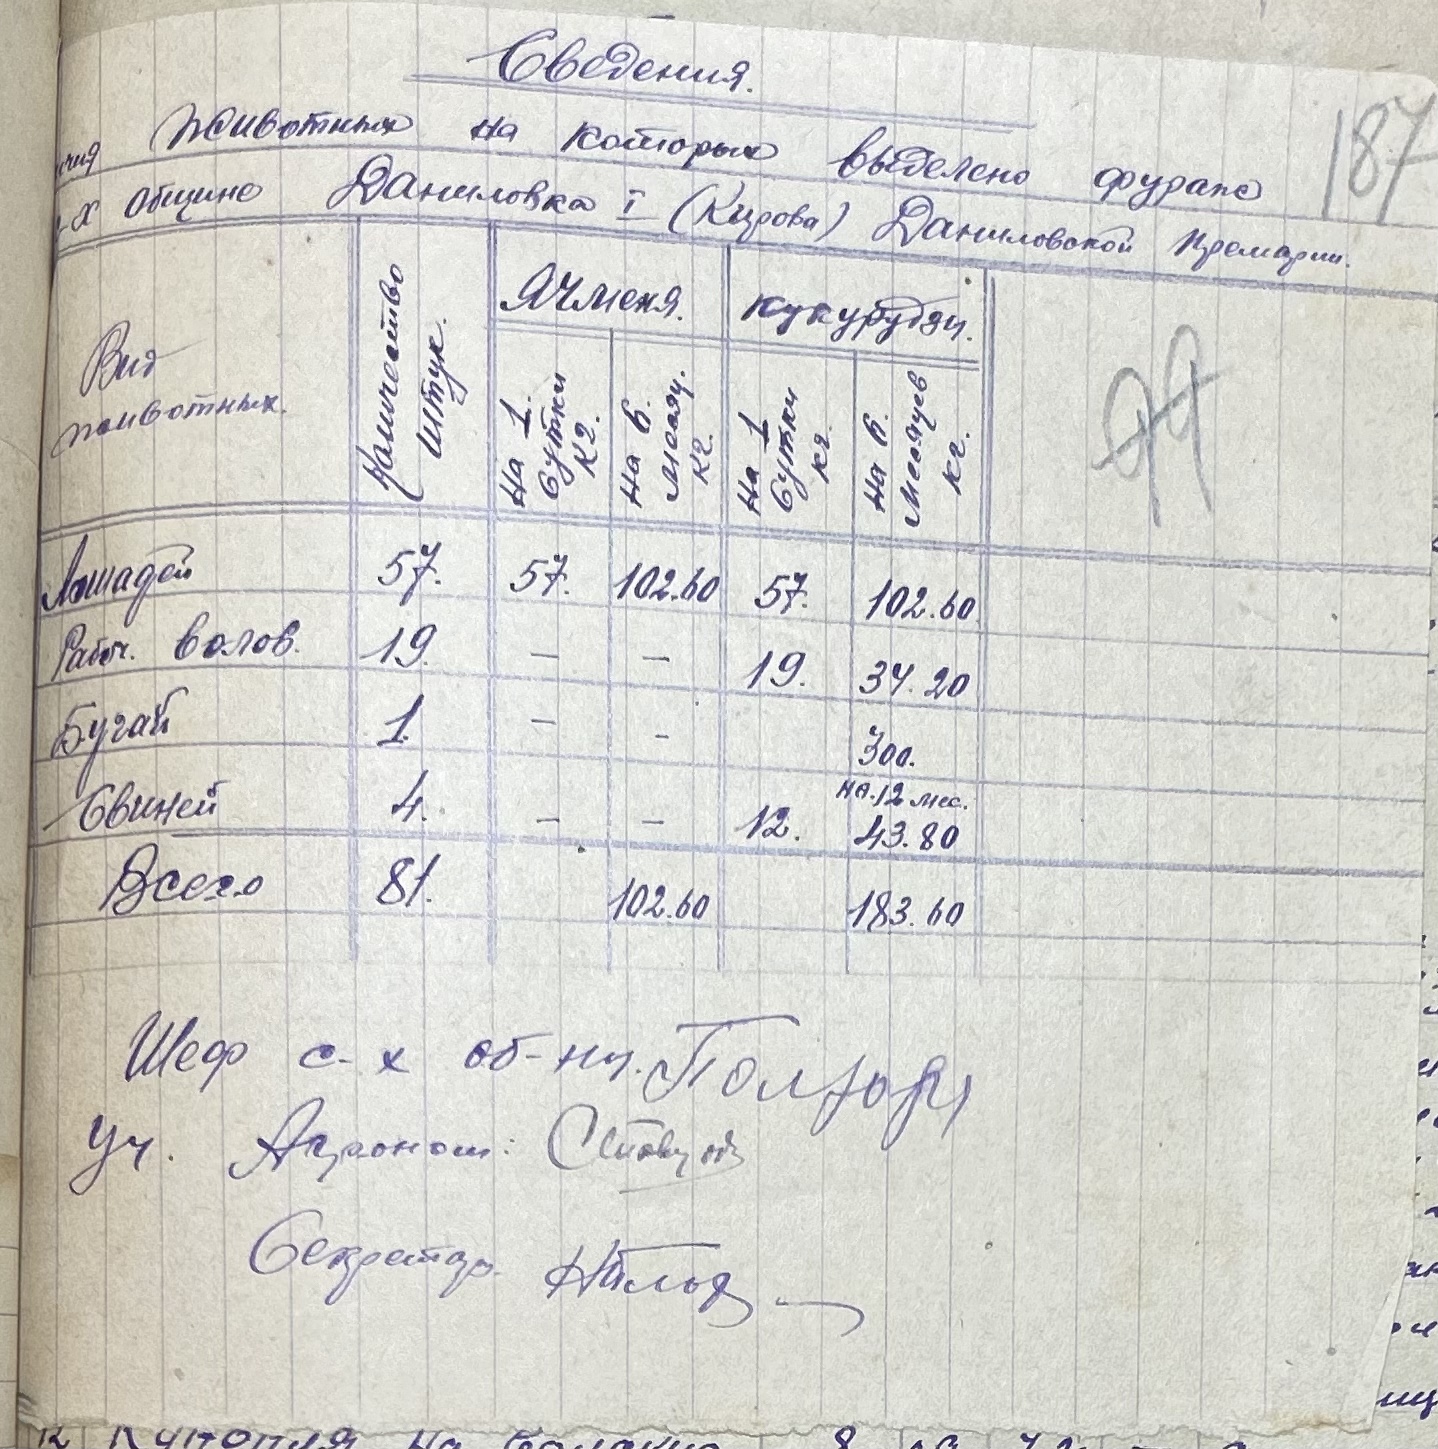 Сведения.
187
животных на которых выделено фураже
-х общине Даниловка I (Кирова) Даниловской Премарии.
Вид животных.
Количество штук.
Ячменя.
кукурудзы.
На 1. сутки кг.
На 6. месяц. кг.
На 1 сутки кг.
На 6. месяцев кг.
Лошадей 57. 57. 102.60 57. 102.60
Рабоч. волов. 19. — — 19. 34.20
Бугай 1. — - 300.
Свиней 4. — — 12. на 12 мес. 43.80
Всего 81. 102.60 183.60
Шеф с-х об-ны.
Уч. Агроном:
Секретарь.